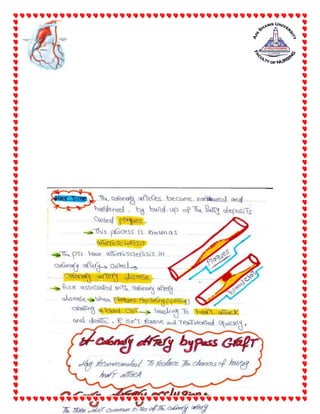 AIN SHAMS UNIVERSITY
FACULTY OF NURSING
over time The coronary arteries become narrowed and
hardened, by build-up of the fatty deposits
called plaques
This process is known as
atherosclerosis
The pts have atherosclerosis in
coronary artery called
coronary artery disease
Risk associated with coronary artery
disease when plaques
creating a blood clot leading to heart attack
and death, if isn't remove and treated quickly.
Plaques
blood clot
coronary artery bypass Graft
recommended To Reduce the chances of having
heart attack
The three most common sites of the coronary artery